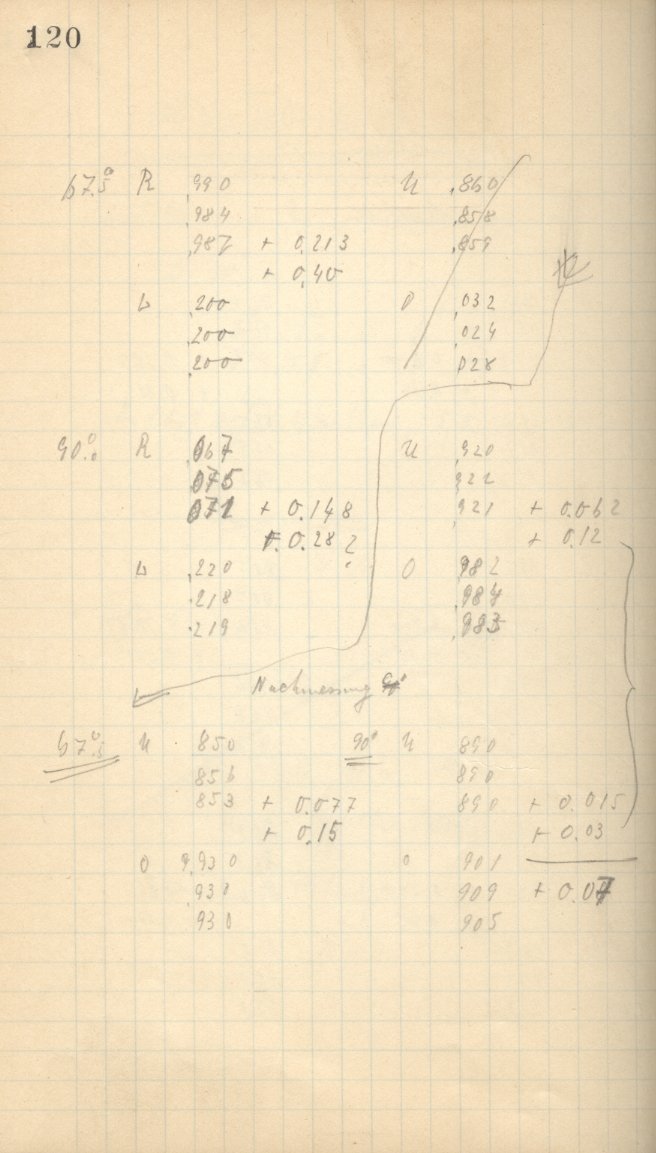 120
67.5° R .990 U .860
.984 .858
.987 + 0.213 .859
+ 0.40
L .200 O .032
.200 .024
.200 .028
90.°0 R .067 U .920
.075 .922
.071 + 0.148 .921 + 0.062
+ 0.282 + 0.12
L .220 O .982
.218 .984
.219 .983
Nachmessung
67.°5 U 850 90° U 890
856 890
853 + 0.077 890 + 0.015
+ 0.15 + 0.03
O 9.930 O 901
.930 909 + 0.07
930 905